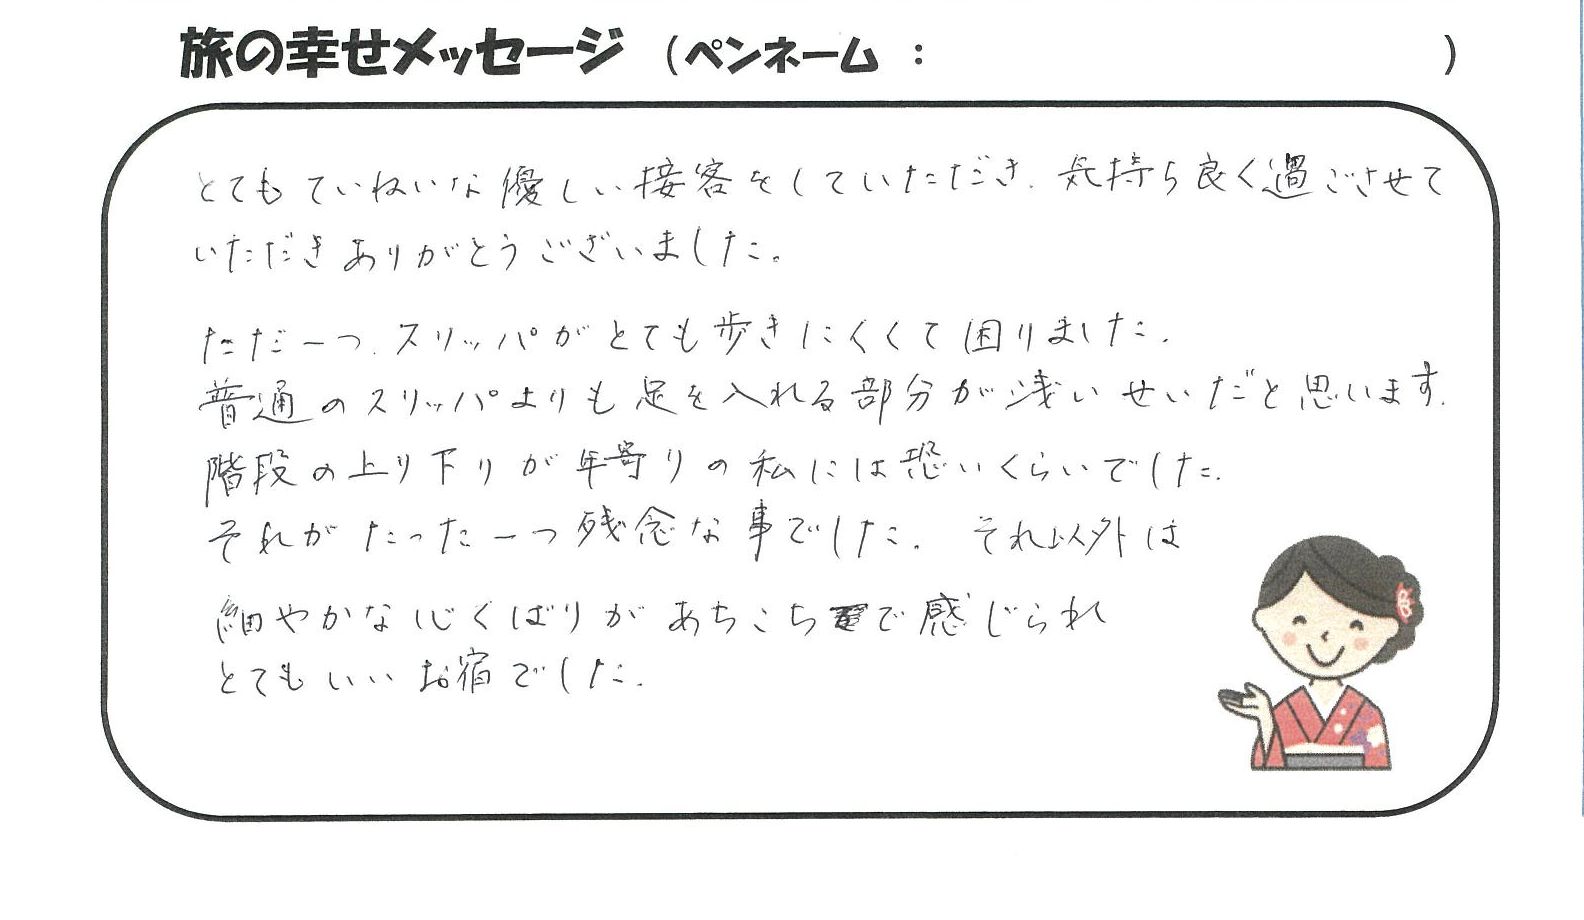 旅の幸せメッセージ (ペンネーム : )
とてもていねいな優しい接客をしていただき、気持ち良く過ごさせて
いただきありがとうございました。
ただ一つ、スリッパがとても歩きにくくて困りました。
普通のスリッパよりも足を入れる部分が浅いせいだと思います。
階段の上り下りが年寄りの私には恐いくらいでした。
それがたった一つ残念な事でした。それ以外は
細やかな心くばりがあちこちで感じられ
とてもいいお宿でした。